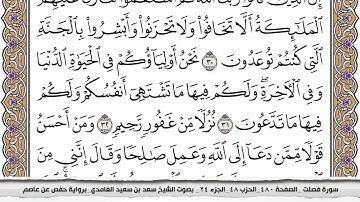 الْمَلَٰٓئِكَةُ أَلَّا تَخَافُوا۟ وَلَا تَحْزَنُوا۟ وَأَبْشِرُوا۟ بِالْجَنَّةِ
الَّتِى كُنتُمْ تُوعَدُونَ ٣٠ نَحْنُ أَوْلِيَآؤُكُمْ فِى الْحَيَوٰةِ الدُّنْيَا
وَفِى الْءَاخِرَةِ ۖ وَلَكُمْ فِيهَا مَا تَشْتَهِىٓ أَنفُسُكُمْ وَلَكُمْ
فِيهَا مَا تَدَّعُونَ ٣١ نُزُلًا مِّنْ غَفُورٍ رَّحِيمٍ ٣٢ وَمَنْ أَحْسَنُ
قَوْلًا مِّمَّن دَعَآ إِلَى اللَّهِ وَعَمِلَ صَٰلِحًا وَقَالَ إِنَّنِى
سورة فصلت _الصفحة ٤٨٠_الحزب ٤٨_الجزء ٢٤ _بصوت الشيخ سعد بن سعيد الغامدي_برواية حفص عن عاصم